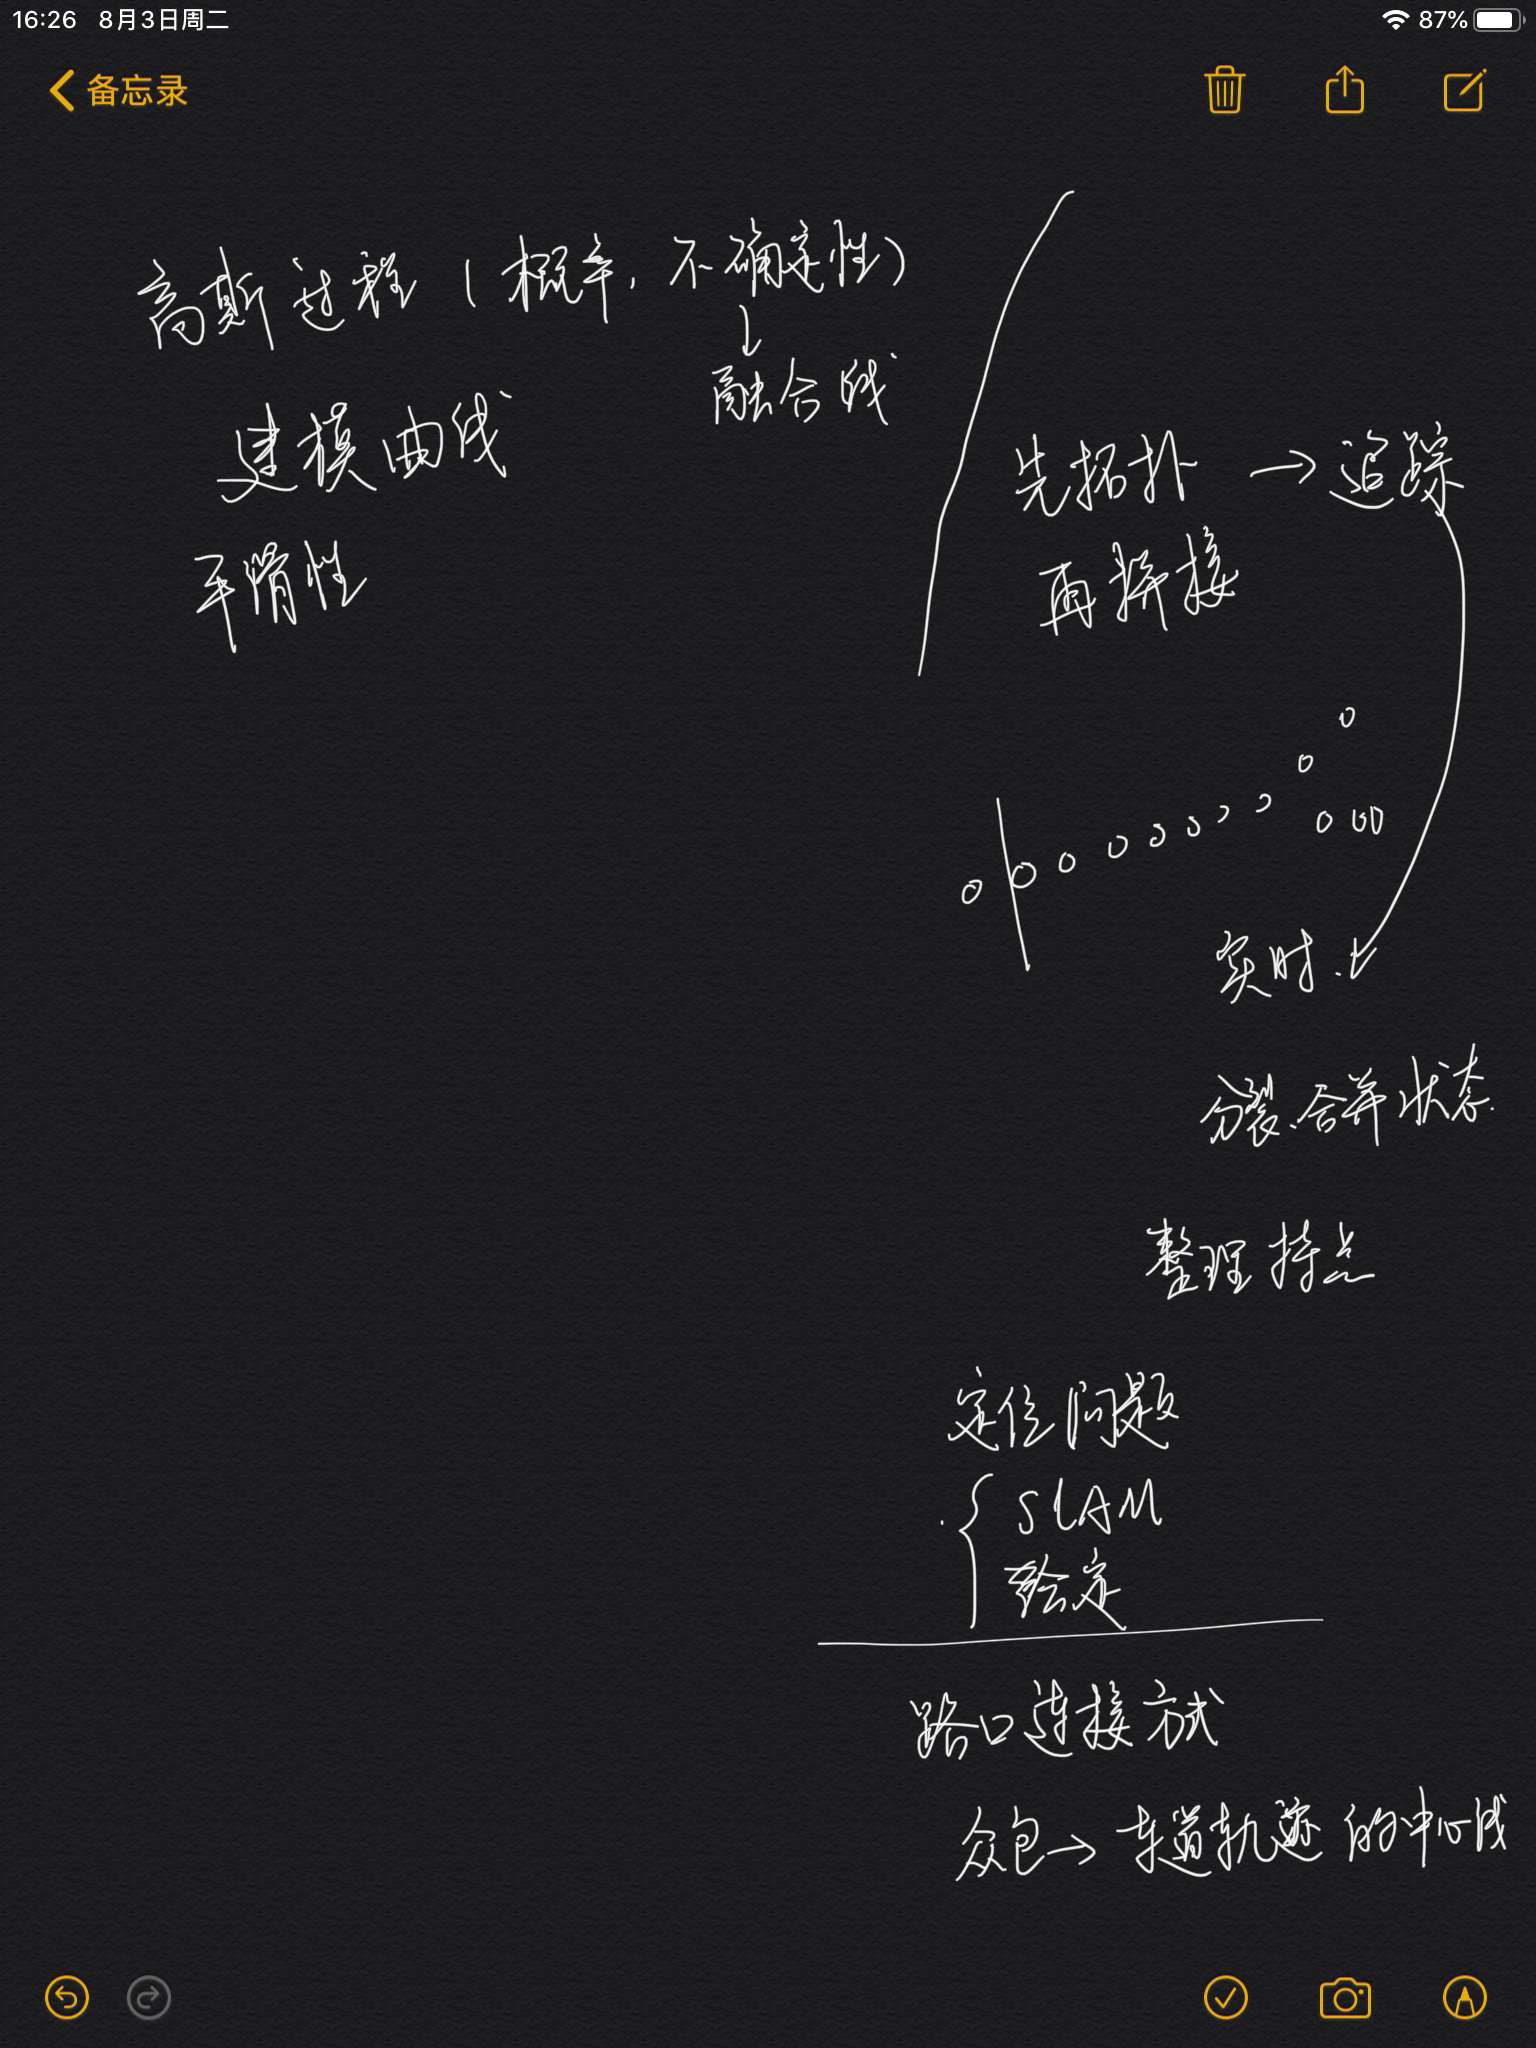 16:26 8月3日周二
87%
备忘录
高斯过程(概率,不确定性)
↓
融合线
建模曲线
平滑性
先拓扑 → 追踪
再拼接
实时.
分裂、合并状态.
整理特点
定位问题
SLAM
给定
路口连接方式
众包→车道轨迹的中心线